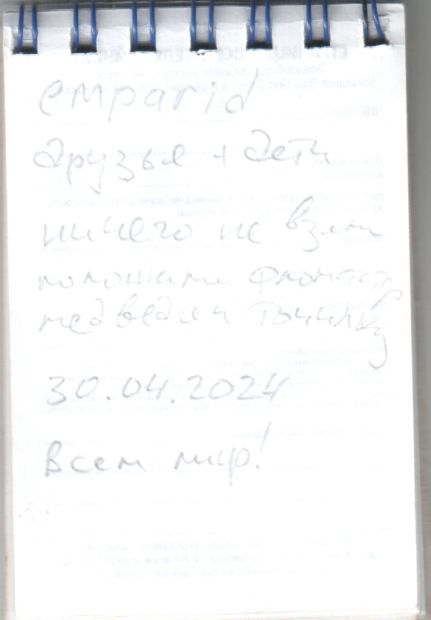 emparid
друзья + дети
ничего не взяли
положили фломастер
медведя и точилку
30.04.2024
всем мир!